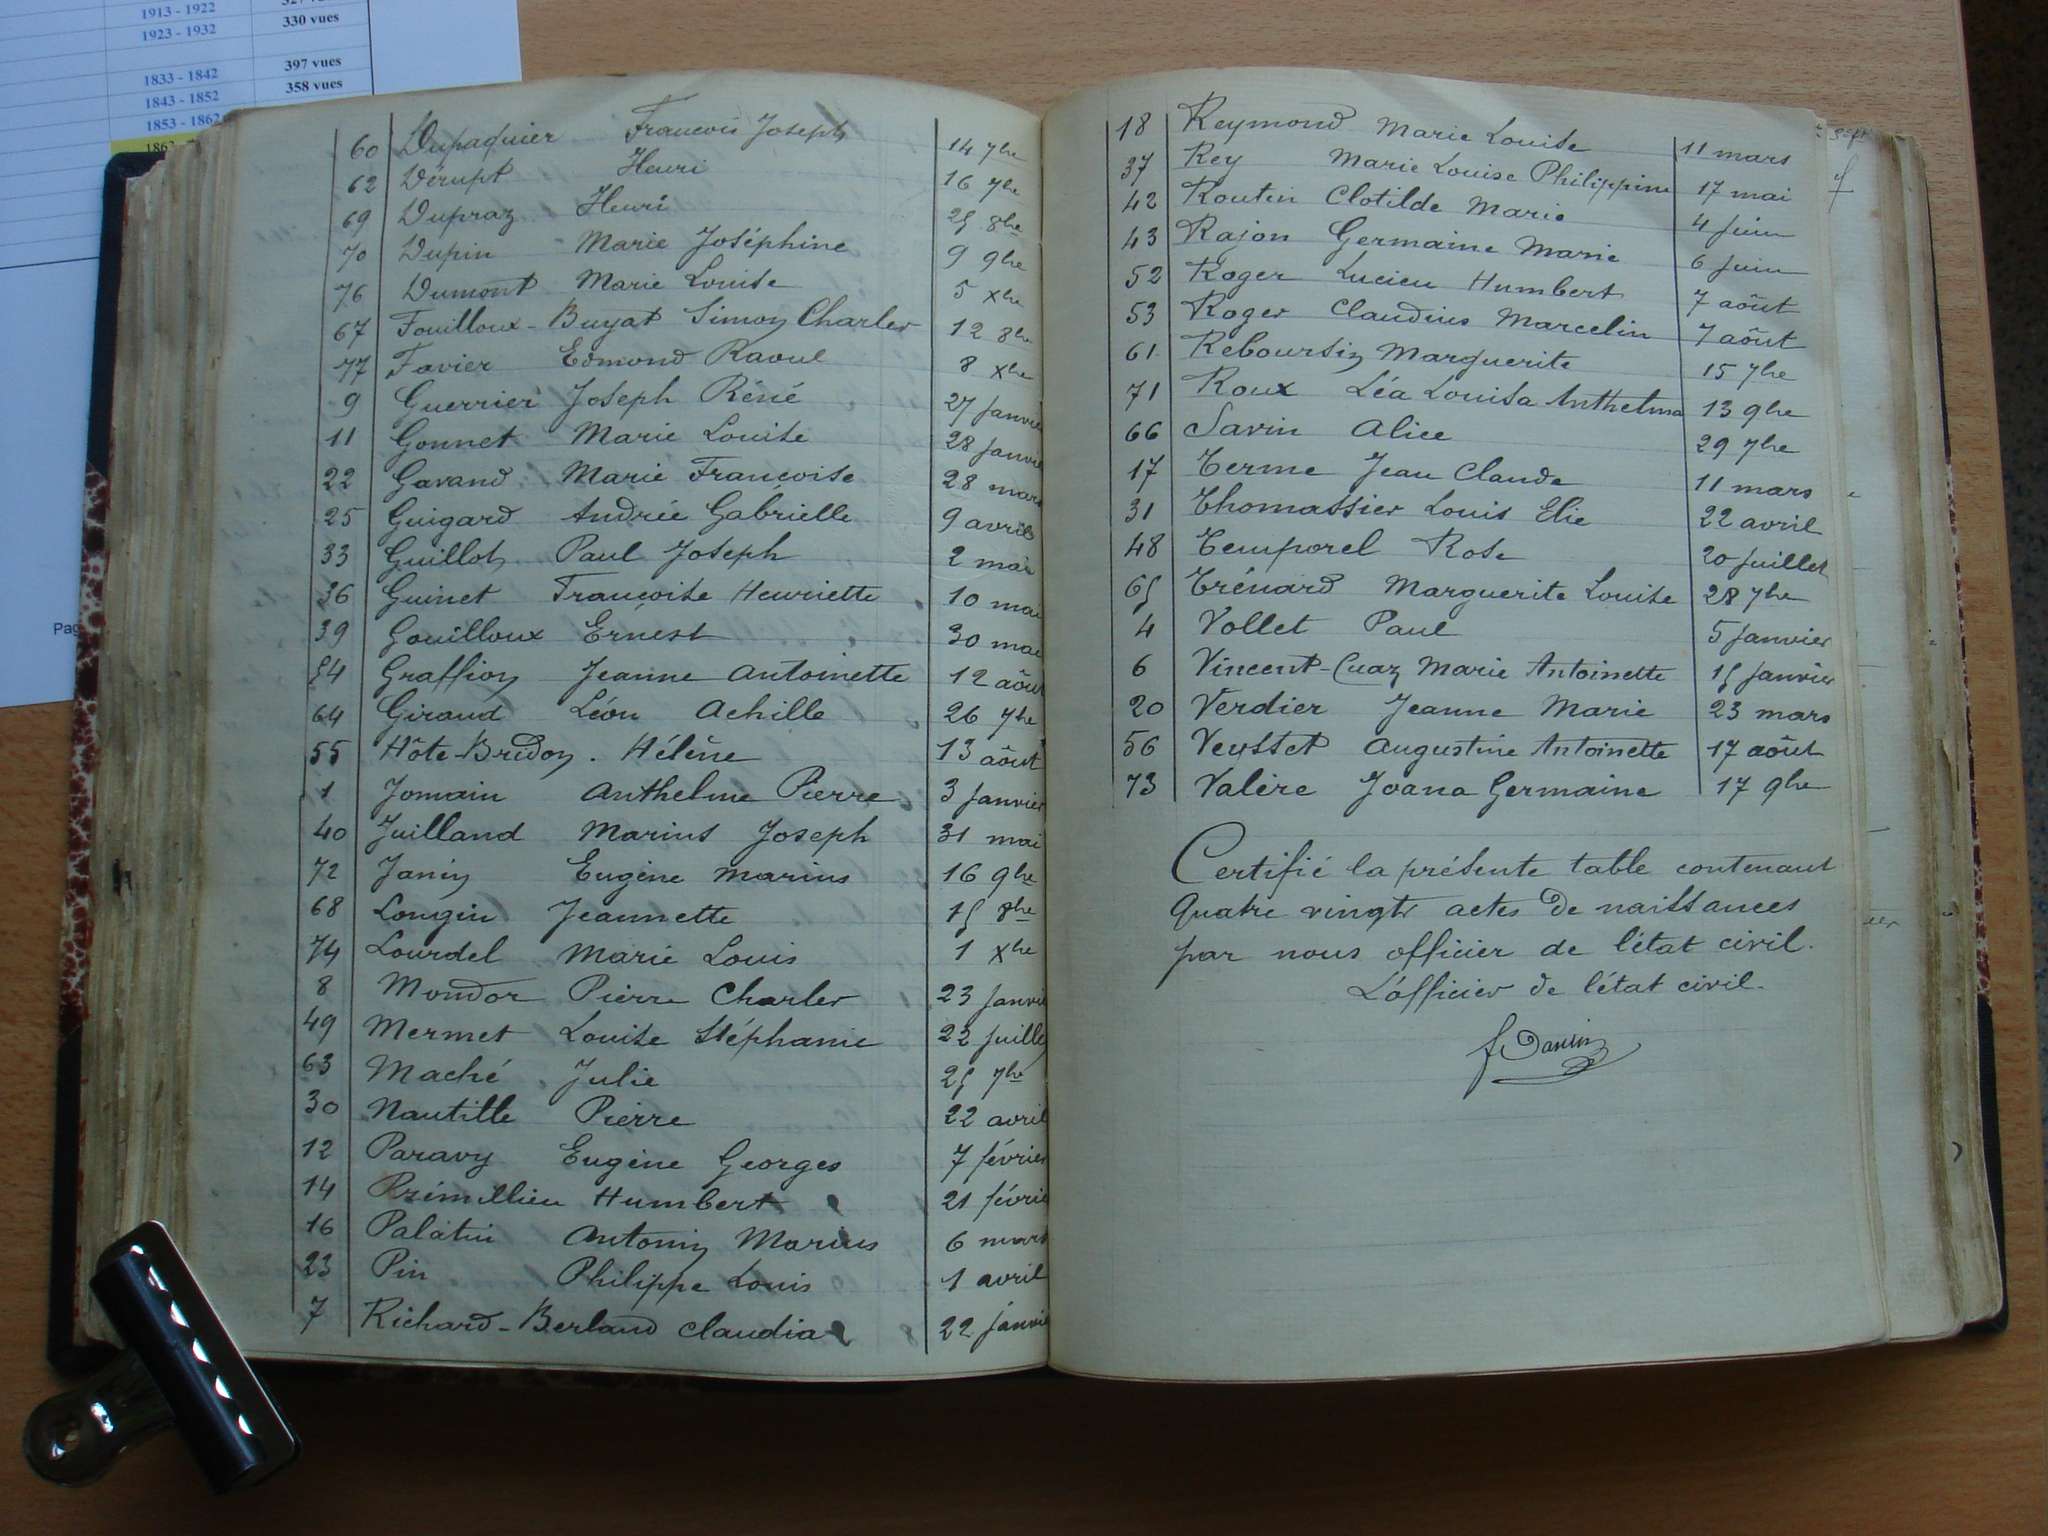 1913 - 1922
1923 - 1932 330 vues
1833 - 1842 397 vues
1843 - 1852 358 vues
1853 - 1862
Pag
60 Dupaquier François Joseph 14 7bre
62 Dérupt Henri 16 7bre
69 Dupraz Henri 25 8bre
70 Dupin Marie Joséphine 9 9bre
76 Dumont Marie Louise 5 Xbre
67 Fouilloux-Buyat Simon Charles 12 8bre
77 Favier Edmond Raoul 8 Xbre
9 Guerrier Joseph Réné 27 janvier
11 Gonnet Marie Louise 28 janvie
22 Gavand Marie Françoise 28 mars
25 Guigard Andrée Gabrielle 9 avril
33 Guillot Paul Joseph 2 mai
36 Guinet Françoise Henriette 10 mai
39 Gouilloux Ernest 30 mai
54 Graffion Jeanne Antoinette 12 aôut
64 Giraud Léon Achille 26 7bre
55 Hôte-Bridon. Hélène 13 aôut
1 Jomain Anthelme Pierre 3 janvier
40 Juilland Marius Joseph 31 mai
72 Janin Eugène Marius 16 9bre
68 Longin Jeannette 15 8bre
74 Lourdel Marie Louis 1 Xbre
8 Mondor Pierre Charles 23 janvi
49 Mermet Louise Stéphanie 22 juille
63 Maché Julie 25 7bre
30 Nautille Pierre 22 avril
12 Paravy Eugène Georges 7 février
14 Prémillieu Humbert 21 févrie
16 Palatin Antonin Marius 6 mars
23 Pin Philippe Louis 1 avril
7 Richard-Berland Claudia 22 janvie
18 Reymond Marie Louise 11 mars
37 Rey Marie Louise Philippine 17 mai
42 Routin Clotilde Marie 4 juin
43 Rajon Germaine Marie 6 juin
52 Roger Lucien Humbert 7 aôut
53 Roger Claudius Marcelin 7 aôut
61 Reboursin Marguerite 15 7bre
71 Roux Léa Louisa Anthelma 13 9bre
66 Savin Alice 29 7bre
17 Terme Jean Claude 11 mars
31 Thomassier Louis Elie 22 avril
48 Temporel Rose 20 juillet
65 Trénard Marguerite Louise 28 7bre
4 Vollet Paul 5 janvier
6 Vincent-Cuaz Marie Antoinette 15 janvier
20 Verdier Jeanne Marie 23 mars
56 Veysset Augustine Antoinette 17 aôut
73 Valère Joana Germaine 17 9bre
Certifié la présente table contenant
quatre vingts actes de naissances
par nous officier de l'état civil.
L'officier de l'état civil.